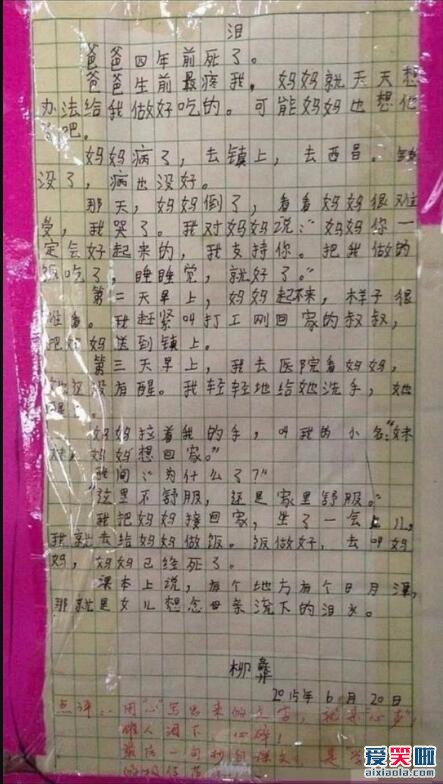 泪
爸爸四年前死了。
爸爸生前最疼我,妈妈就天天想
办法给我做好吃的。可能妈妈也想他
了吧。
妈妈病了,去镇上,去西昌。钱
没了,病也没好。
那天,妈妈倒了,看看妈妈很难
受,我哭了。我对妈妈说:“妈妈你一
定会好起来的,我支持你。把我做的
饭吃了,睡睡觉,就好了。”
第二天早上,妈妈起不来,样子很
难看。我赶紧叫打工刚回家的叔叔,
把妈妈送到镇上。
第三天早上,我去医院看妈妈,
她还没有醒。我轻轻地给她洗手,她
妈妈拉着我的手,叫我的小名:“妹
妹,妈妈想回家。”
我问:“为什么了?”
“这里不舒服,还是家里舒服。”
我把妈妈接回家,坐了一会儿,
我就去给妈妈做饭。饭做好,去叫妈
妈,妈妈已经死了。
课本上说,有个地方有个日月潭,
那就是女儿想念母亲流下的泪水。
柳彝
2015年6月20日
点评:用“心”写出来的文字,
催人泪下
最后一句
爱笑啦
aixiaola.com